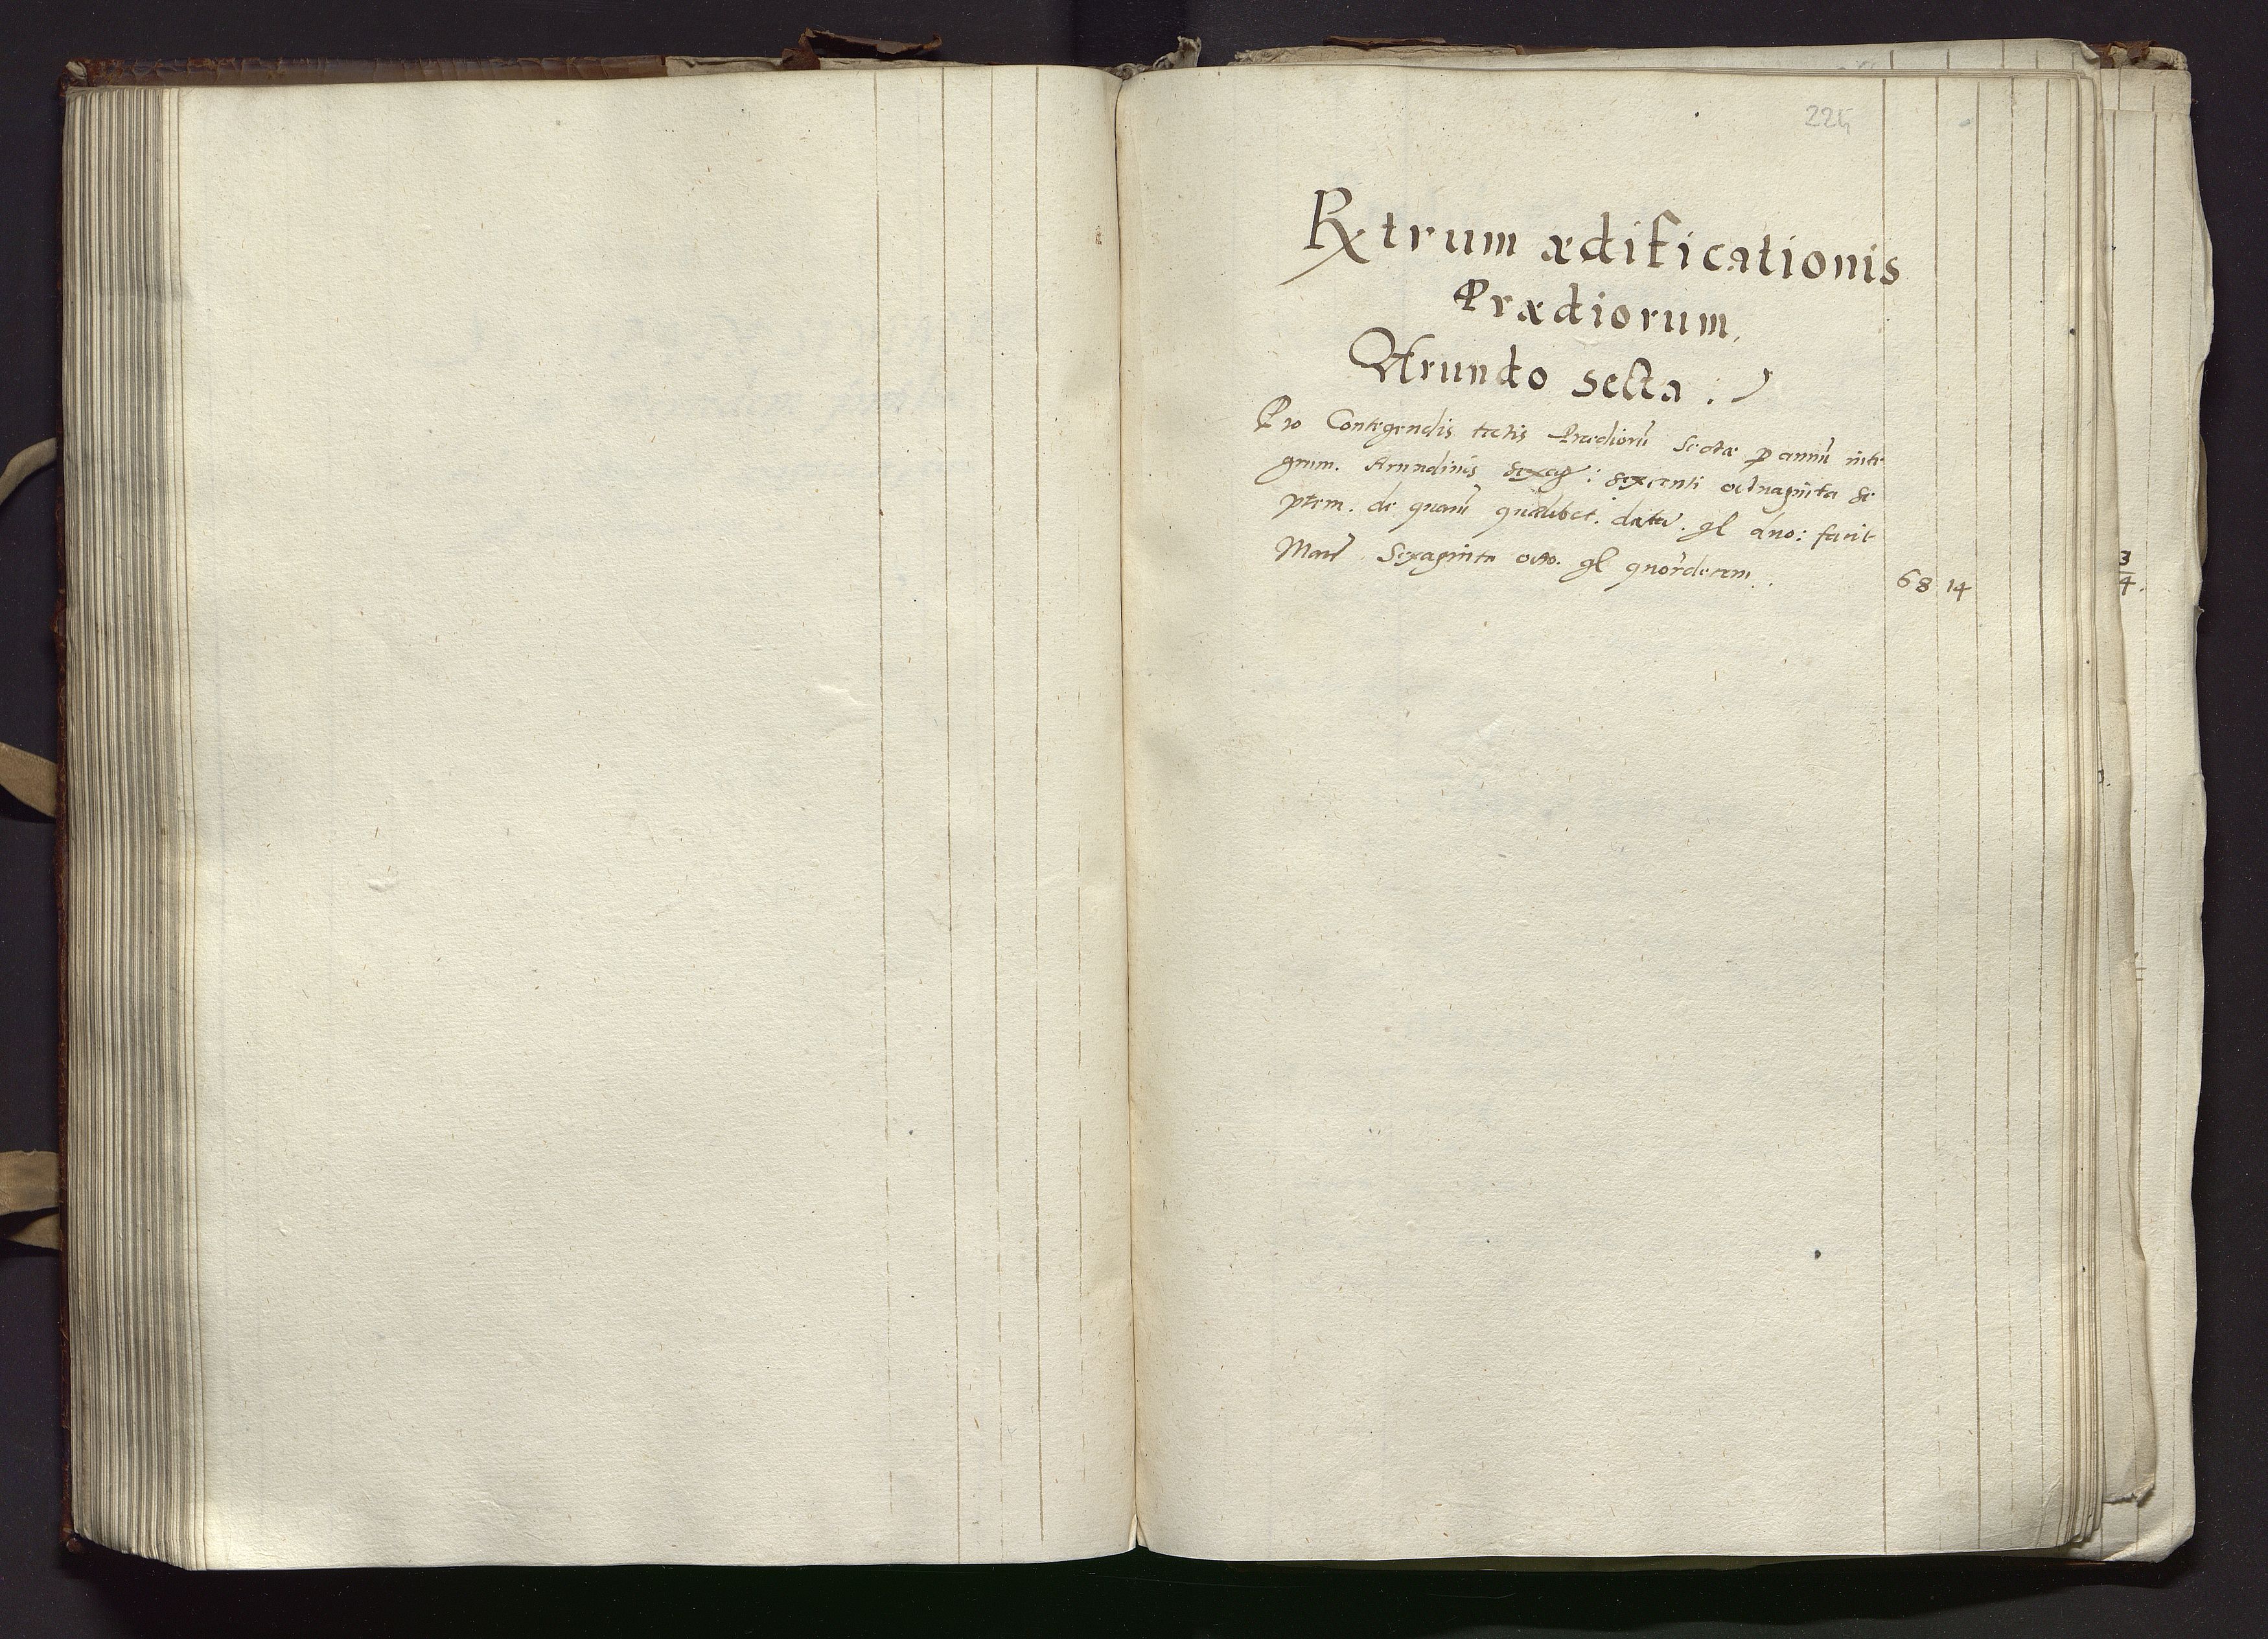 225
Rxtrum ædificationis
Prædiorum.
Arundo secta :
Pro Contegendis tectis Prædiorū Sectæ p annū inte
grum. Arundinis sexag: sexcenti octuaginta se
ptem. de quarū qualibet. datū. gl duo: facit
Marc Sexaginta octo. gl quordecem. 68 14
3
4.